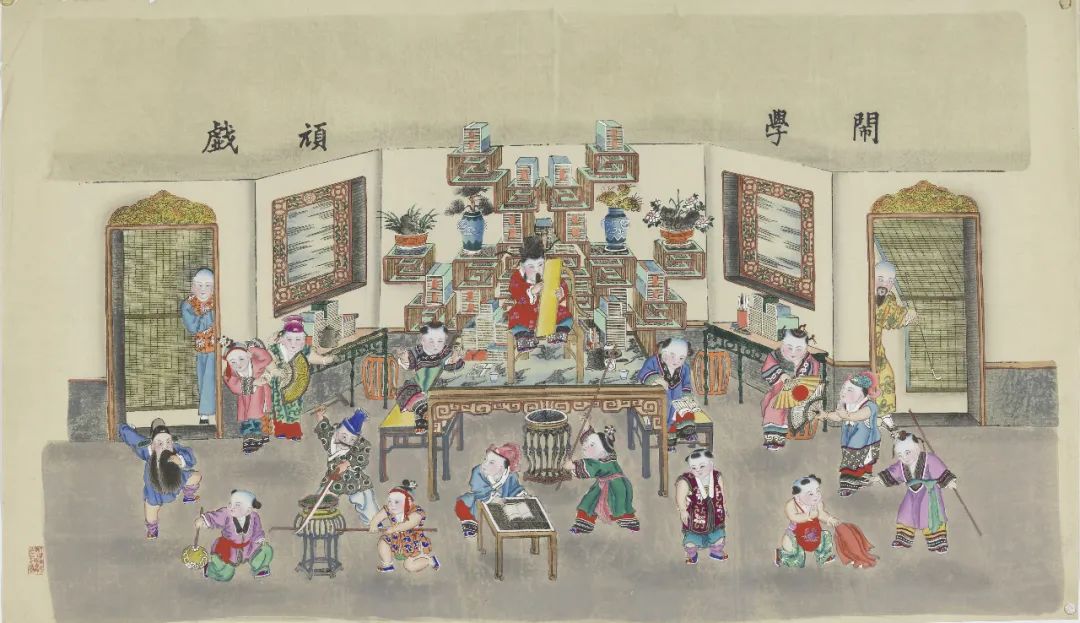 鬧學頑戲